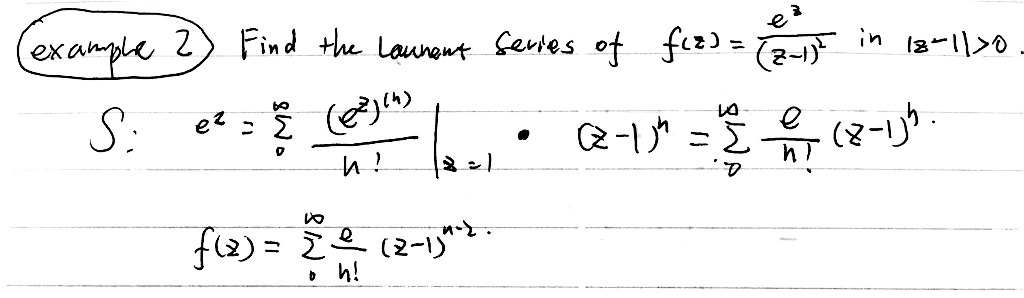 example 2) Find the Laurent Series of f(z) = e^z / (z-1)^2 in |z-1|>0.
S: e^z = ∑_0^∞ (e^z)^(n) / n! |_{z=1} • (z-1)^n = ∑_0^∞ e/n! (z-1)^n.
f(z) = ∑_0^∞ e/n! (z-1)^{n-2}.